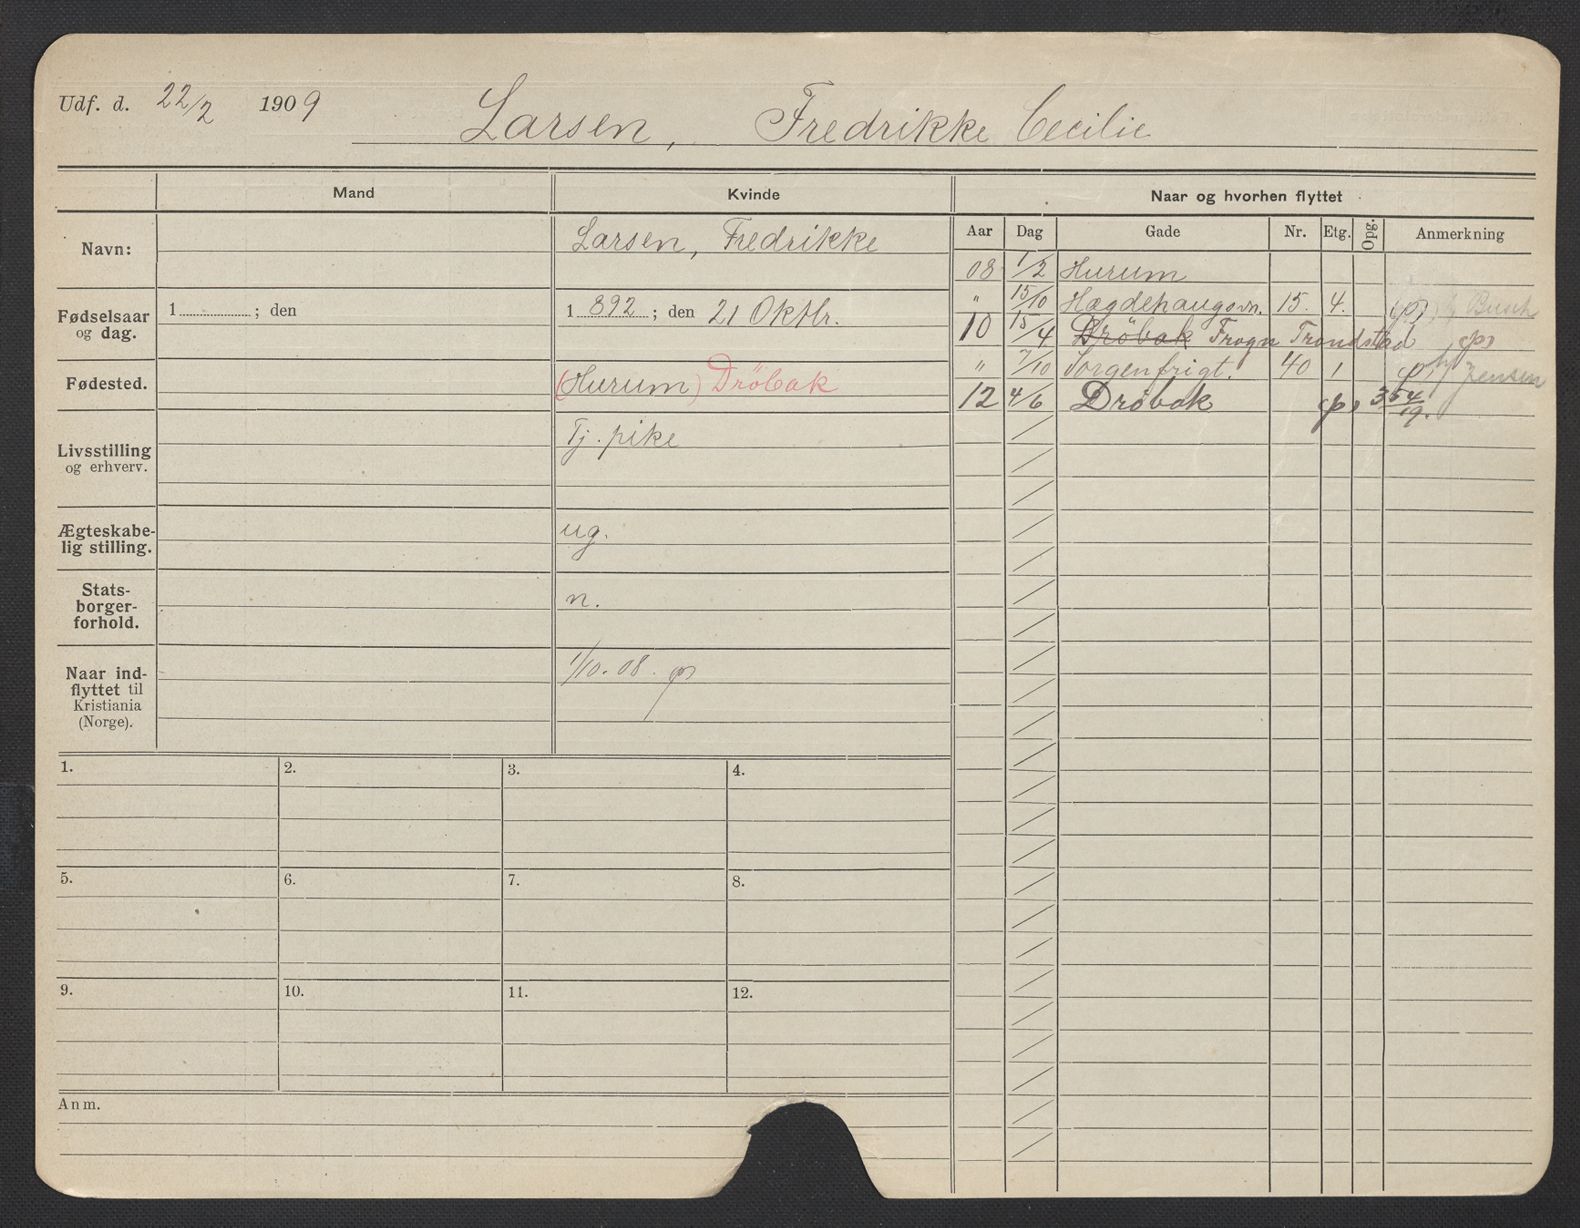 Udf. d. 22/2 1909 Larsen, Fredrikke Cecilie
Mand Kvinde Naar og hvorhen flyttet
Aar Dag Gade Nr. Etg. Opg. Anmerkning
Navn: Larsen, Fredrikke
Fødselsaar og dag. 1 ; den 1 892 ; den 21 Oktbr.
Fødested. (Hurum) Drøbak
Livsstilling og erhverv. Tj. pike
Ægteskabe-
lig stilling. ug.
Stats-
borger-
forhold. n.
Naar ind-
flyttet til
Kristiania
(Norge). 1/10. 08. p
08 1/2 Hurum
" 15/10 Hægdehaugsvn. 15. 4. (p) Busch
10 15/4 Drøbak Frogn Trondstad (p)
" 7/10 Sorgenfrigt. 40 1 Jensen
12 4/6 Drøbak (p) 354/19.
1. 2. 3. 4.
5. 6. 7. 8.
9. 10. 11. 12.
Anm.